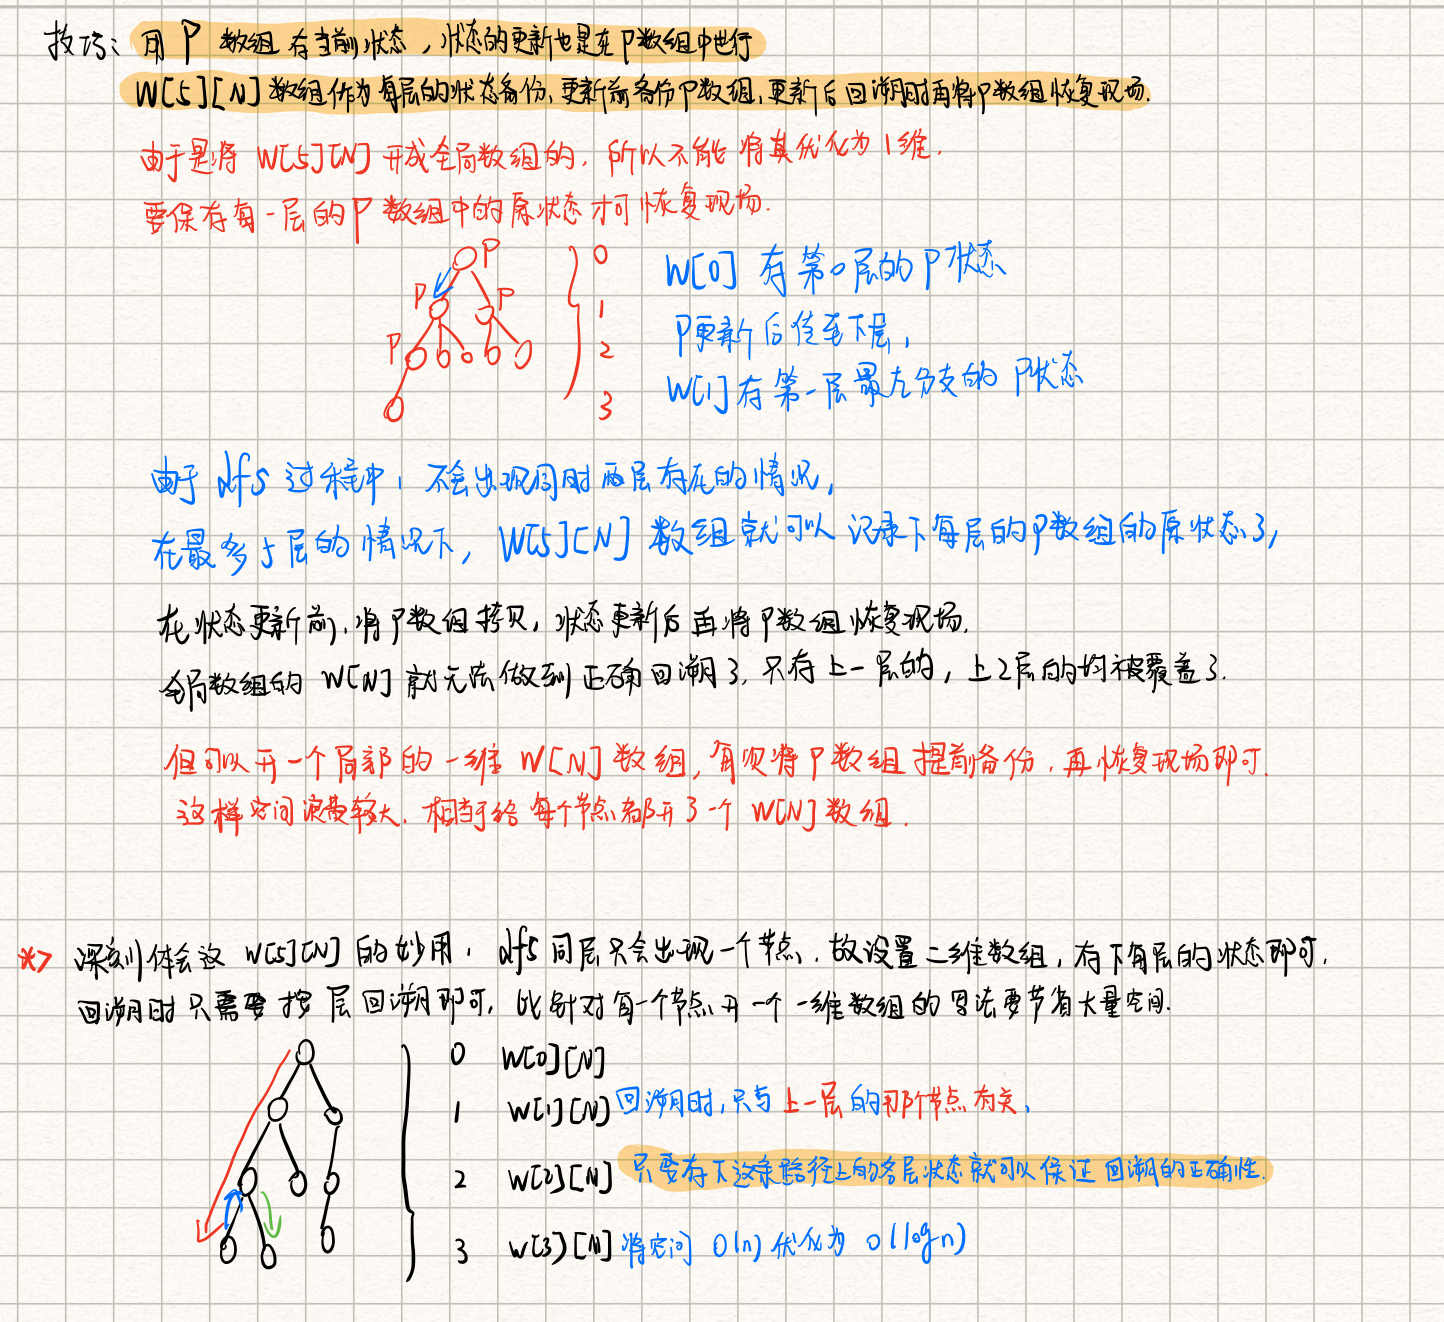 技巧：用 P 数组存当前状态，状态的更新也是在P数组中进行
W[5][N]数组作为每层的状态备份，更新前备份P数组，更新后回溯时再将P数组恢复现场.
由于是将 W[5][N] 开成全局数组的，所以不能将其优化为1维.
要保存每一层的P数组中的原状态才可恢复现场.
P
0
W[0] 存第0层的P状态
P P
1
P更新后传至下层，
P
2
W[1]存第一层最左分支的P状态
3
由于dfs过程中，不会出现同时两层存在的情况，
在最多5层的情况下，W[5][N]数组就可以记录下每层的P数组的原状态了，
在状态更新前，将P数组拷贝，状态更新后再将P数组恢复现场.
全局数组的 W[N] 就无法做到正确回溯了，只存上一层的，上2层的均被覆盖了.
但可以开一个局部的一维 W[N] 数组，每次将P数组提前备份，再恢复现场即可.
这样空间浪费较大，相当于给每个节点都开了一个 W[N] 数组.
*> 深刻体会这 W[5][N] 的妙用，dfs同层只会出现一个节点，故设置二维数组，存下每层的状态即可.
回溯时只需要按层回溯即可，比针对每一个节点开一个一维数组的写法要节省大量空间.
0 W[0][N]
1 W[1][N] 回溯时，只与上一层的那个节点有关，
2 W[2][N] 只要存下这条路径上的各层状态就可以保证回溯的正确性.
3 W[3][N] 将空间 O(n) 优化为 O(logn)